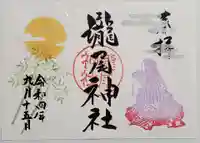 奉拝
瀧尾神社
令和四年
九月十五日